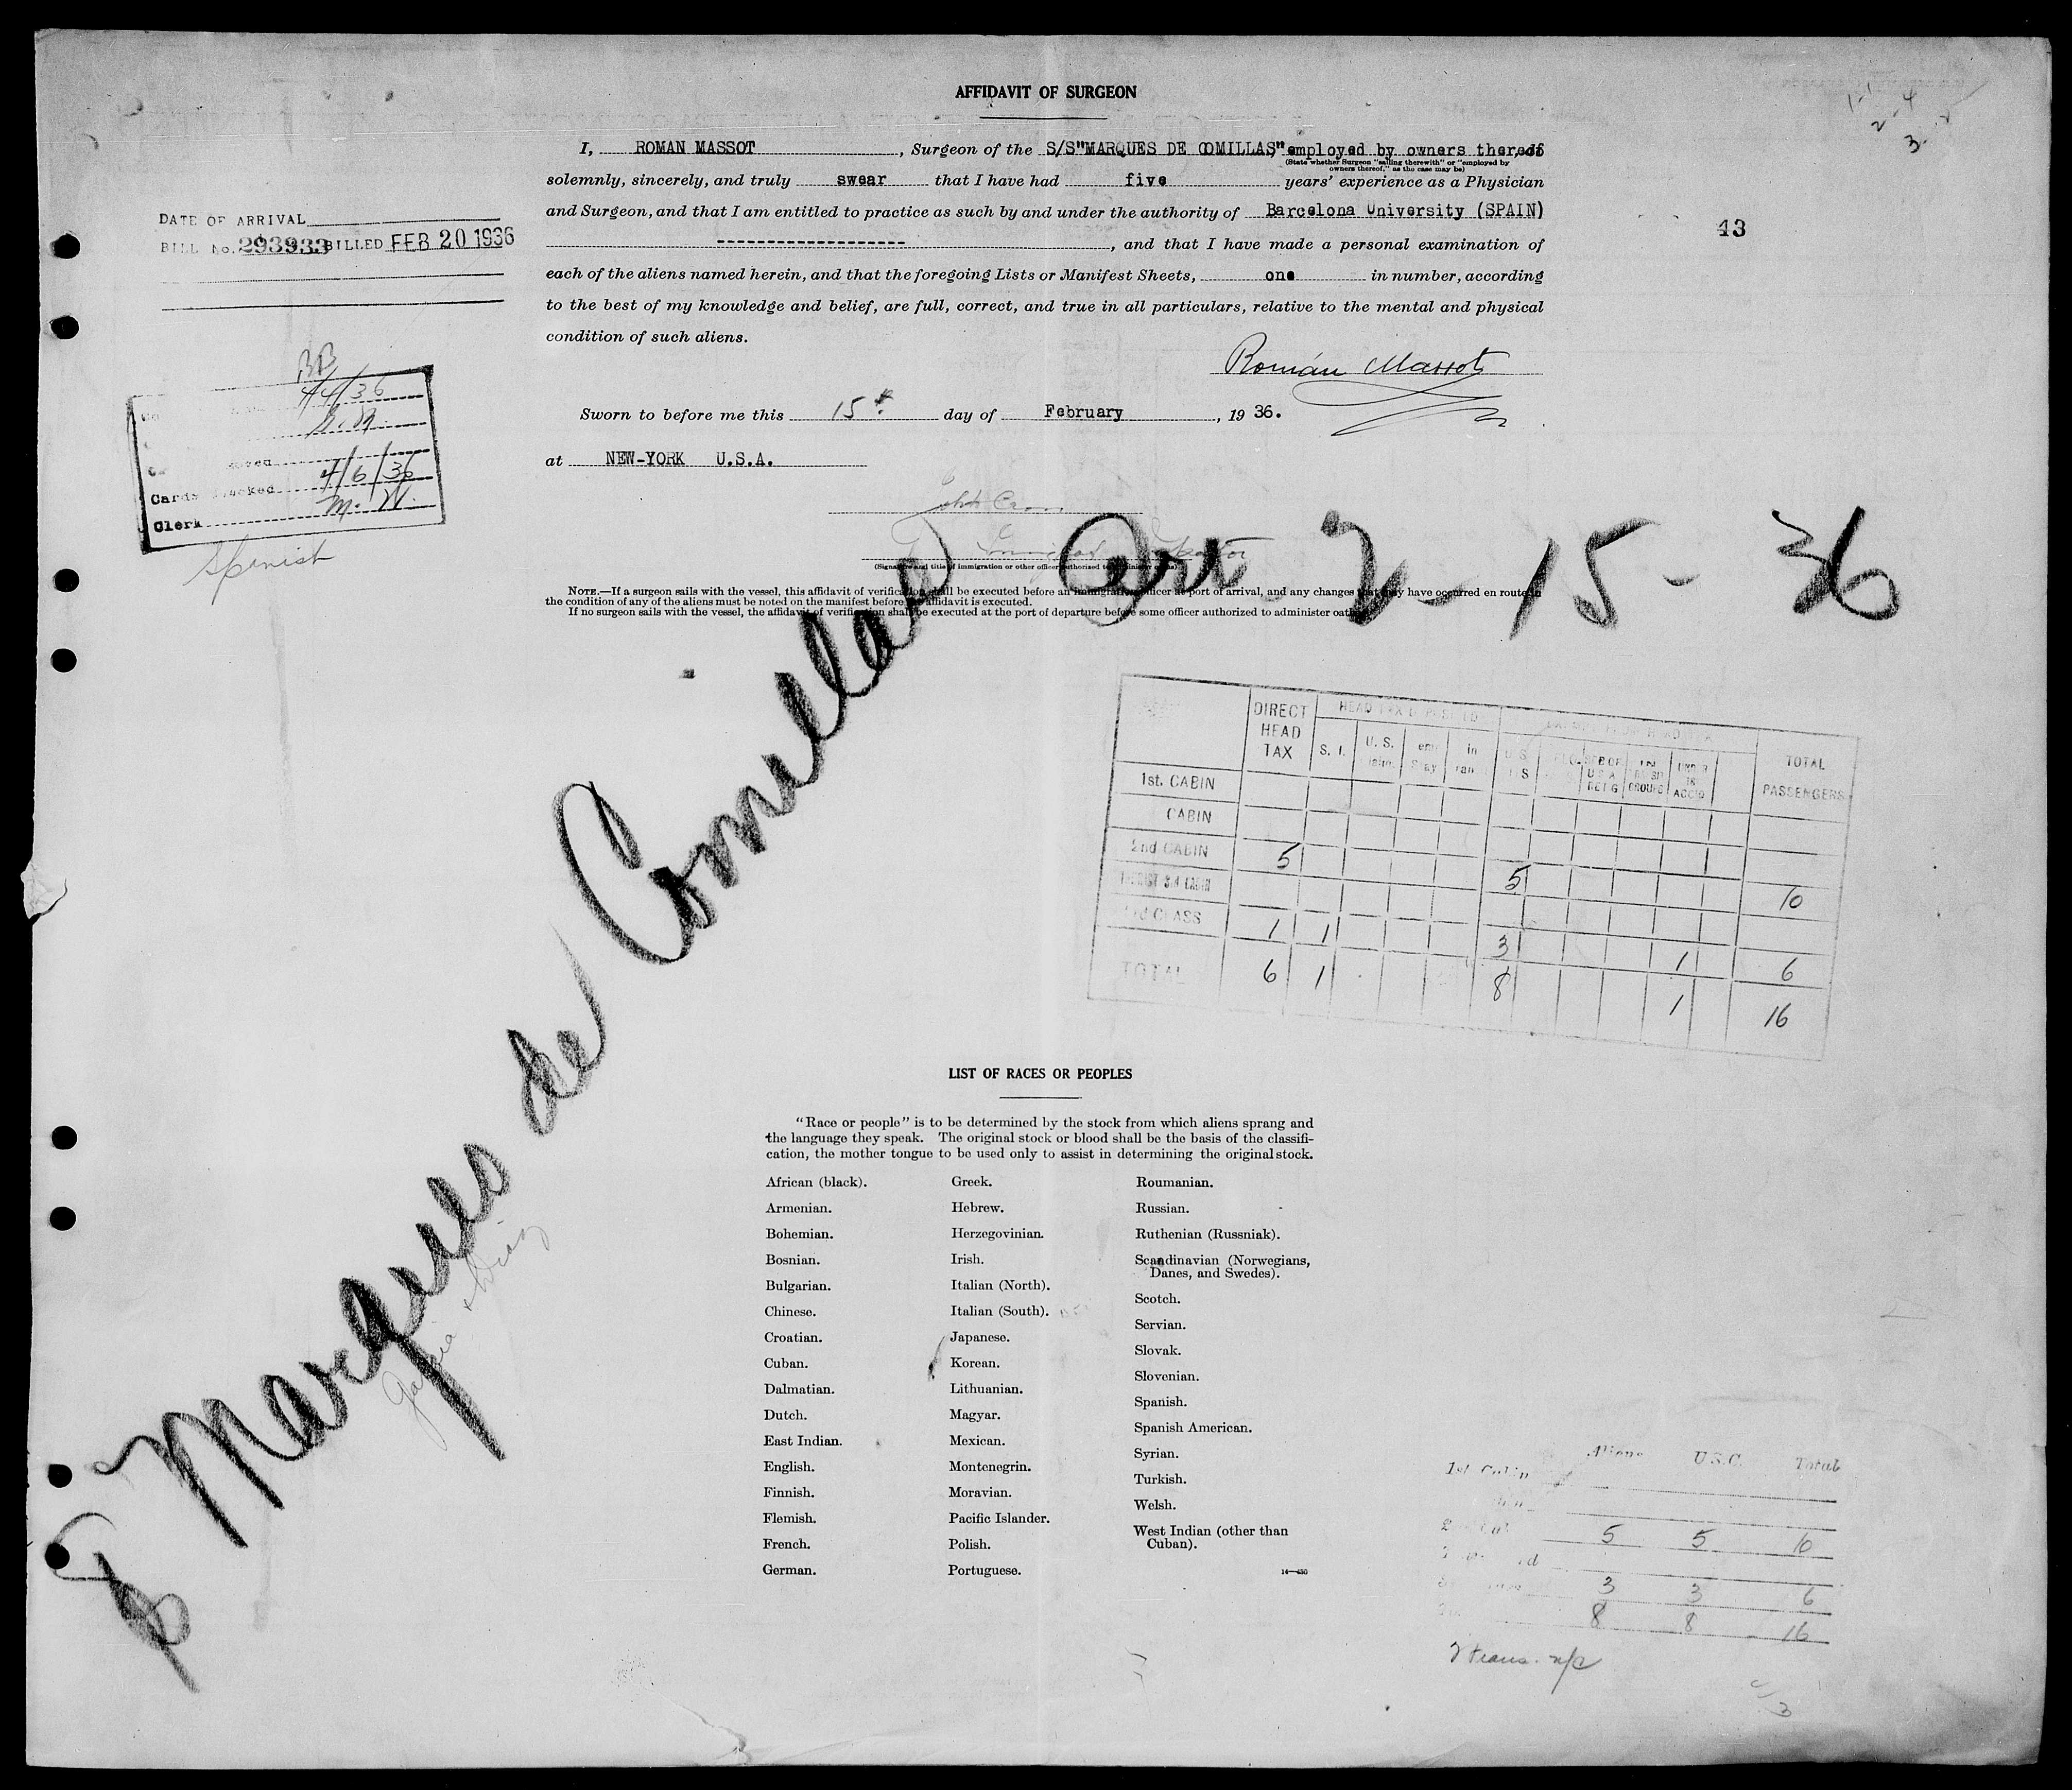 AFFIDAVIT OF SURGEON
I, ROMAN MASSOT, Surgeon of the S/S"MARQUES DE COMILLAS" employed by owners thereof, do
(State whether Surgeon "sailing therewith" or "employed by
owners thereof," as the case may be)
solemnly, sincerely, and truly swear that I have had five years' experience as a Physician
and Surgeon, and that I am entitled to practice as such by and under the authority of Barcelona University (SPAIN)
-------------------, and that I have made a personal examination of
each of the aliens named herein, and that the foregoing Lists or Manifest Sheets, one in number, according
to the best of my knowledge and belief, are full, correct, and true in all particulars, relative to the mental and physical
condition of such aliens.
Román Massot
Sworn to before me this 15th day of February, 1936.
at NEW-YORK U.S.A.
(Signature and title of immigration or other officer authorized to administer oaths)
NOTE.—If a surgeon sails with the vessel, this affidavit of verification shall be executed before an immigration officer at port of arrival, and any changes that may have occurred en route in
the condition of any of the aliens must be noted on the manifest before the affidavit is executed.
If no surgeon sails with the vessel, the affidavit of verification shall be executed at the port of departure before some officer authorized to administer oaths.
DATE OF ARRIVAL
BILL No. 293933 BILLED FEB 20 1936
43
1-1
2-4
3-2
BB
4/4/36
Cards Checked 4/6/36
Clerk M. W.
Spanish
SS Marques de Comillas Arr 2-15-36
Garcia & Diaz
DIRECT HEAD TAX
HEAD TAX DEPOSITED
S. I.
U. S.
TOTAL PASSENGERS
1st. CABIN
CABIN
2nd CABIN 5 5 10
TOURIST 3rd CABIN
3rd CLASS 1 1 3 1 6
TOTAL 6 1 8 1 16
LIST OF RACES OR PEOPLES
"Race or people" is to be determined by the stock from which aliens sprang and
the language they speak. The original stock or blood shall be the basis of the classifi-
cation, the mother tongue to be used only to assist in determining the original stock.
African (black).
Armenian.
Bohemian.
Bosnian.
Bulgarian.
Chinese.
Croatian.
Cuban.
Dalmatian.
Dutch.
East Indian.
English.
Finnish.
Flemish.
French.
German.
Greek.
Hebrew.
Herzegovinian.
Irish.
Italian (North).
Italian (South).
Japanese.
Korean.
Lithuanian.
Magyar.
Mexican.
Montenegrin.
Moravian.
Pacific Islander.
Polish.
Portuguese.
Roumanian.
Russian.
Ruthenian (Russniak).
Scandinavian (Norwegians,
Danes, and Swedes).
Scotch.
Servian.
Slovak.
Slovenian.
Spanish.
Spanish American.
Syrian.
Turkish.
Welsh.
West Indian (other than
Cuban).
14—430
Aliens U.S.C. Total
1st Cabin
5 5 10
3 3 6
8 8 16